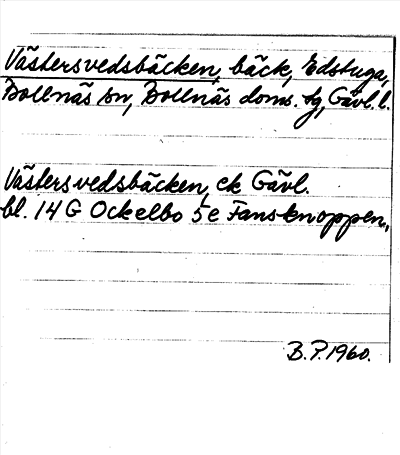 Västersvedsbäcken, bäck, Edstuga,
Bollnäs sn, Bollnäs doms. tg, Gävl. l.
Västersvedsbäcken, ek Gävl.
bl. 14 G Ockelbo 5e Fansknoppen,
B.P.1960.